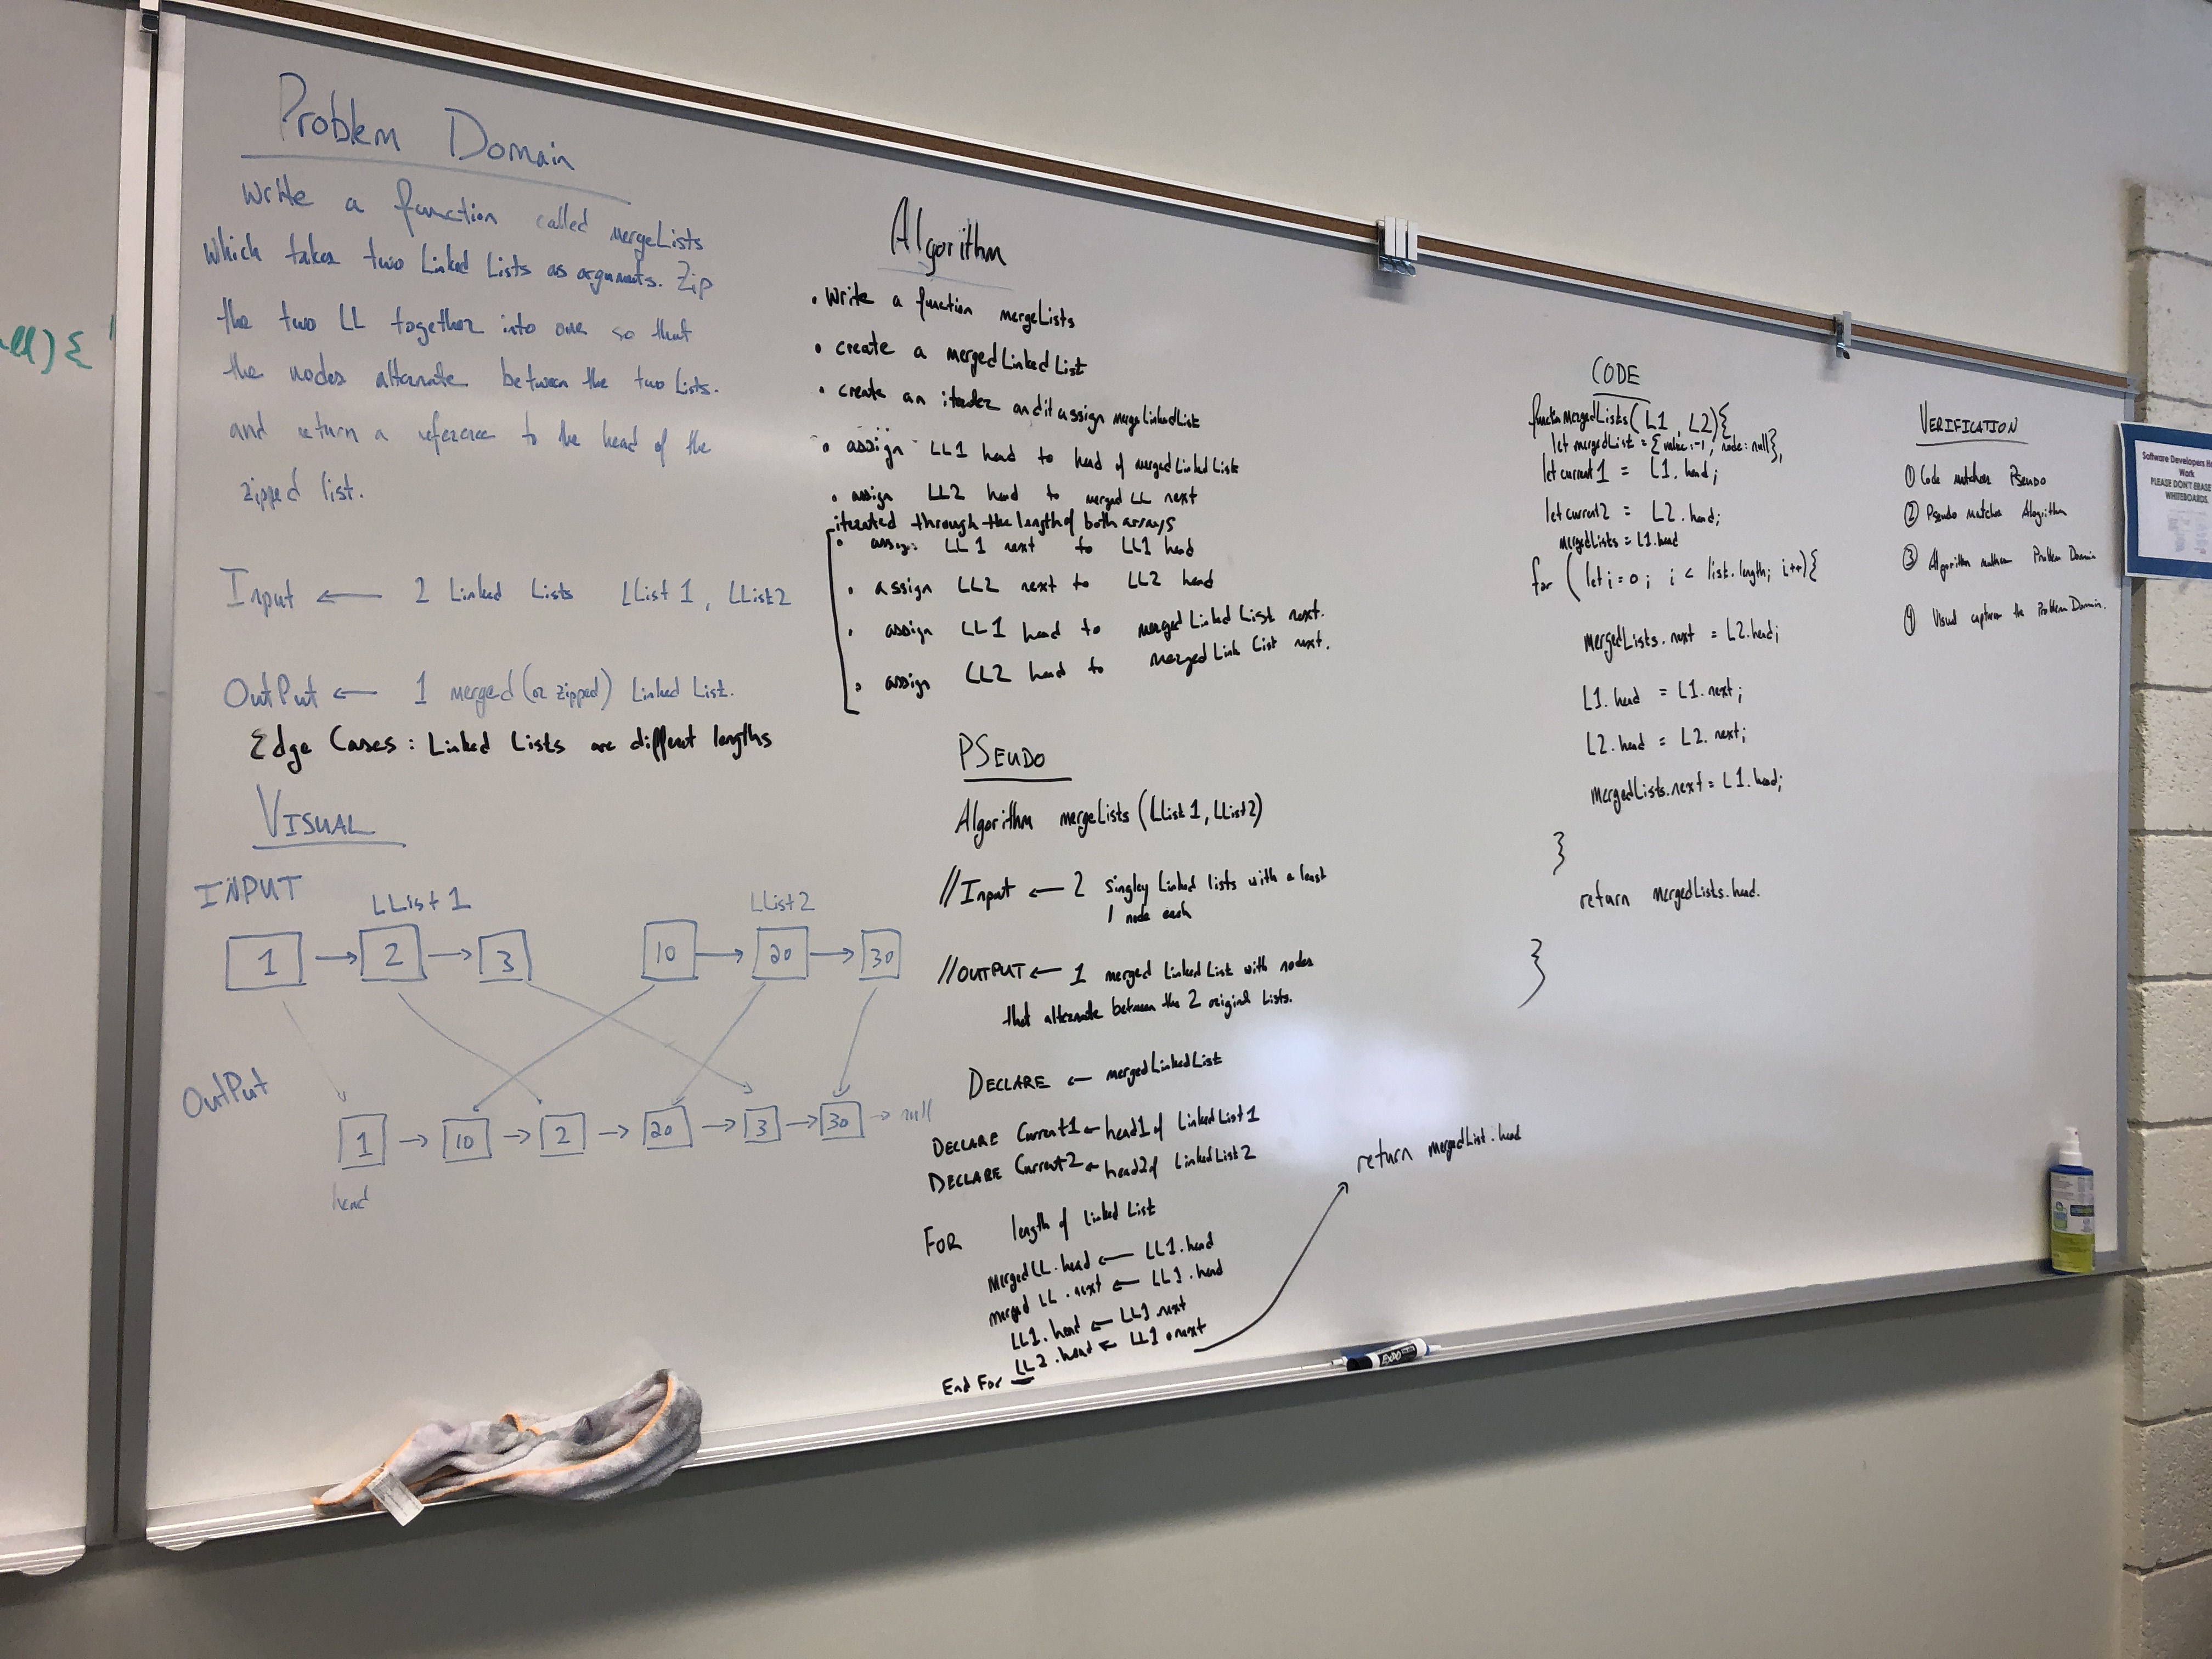 Problem Domain
Write a function called mergeLists
Which takes two Linked Lists as arguments. Zip
the two LL together into one so that
the nodes alternate between the two Lists.
and return a reference to the head of the
zipped list.
Input ← 2 Linked Lists LList1, LList2
OutPut ← 1 merged (or zipped) Linked List.
Edge Cases: Linked Lists are different lengths
VISUAL
INPUT
LList1
LList2
1 → 2 → 3
10 → 20 → 30
OutPut
1 → 10 → 2 → 20 → 3 → 30 → null
head
Algorithm
• Write a function mergeLists
• create a mergedLinkedList
• create an and it assign mergeLinkedList
• assign LL1 head to head of mergedLinkedList
• assign LL2 head to merged LL next
iterated through the length of both arrays
• assign LL1 next to LL1 head
• assign LL2 next to LL2 head
• assign LL1 head to merged Linked List next.
• assign LL2 head to merged Link List next.
PSEUDO
Algorithm mergeLists (LList1, LList2)
//Input ← 2 singley Linked lists with a least
1 node each
//OUTPUT ← 1 merged LinkedList with nodes
that alternate between the 2 original Lists.
DECLARE ← mergedLinkedList
DECLARE Current1 ← head1 of LinkedList1
DECLARE Current2 ← head2 of LinkedList2
FOR length of Linked List
MergedLL.head ← LL1.head
merged LL.next ← LL1.head
LL1.head ← LL1.next
LL2.head ← LL1.next
End For
return mergedList.head
CODE
function mergedLists(L1, L2){
let mergedList = {value:-1, node:null},
let current1 = L1.head;
let current2 = L2.head;
mergedLists = L1.head
for (let i=0; i < list.length; i++){
mergedLists.next = L2.head;
L1.head = L1.next;
L2.head = L2.next;
mergedLists.next = L1.head;
}
return mergedLists.head.
}
VERIFICATION
① Code matches Pseudo
② Pseudo matches Alogrithm
③ Algorithm matches Problem Domain
④ Visual captures the Problem Domain.
Software Developers
Work
PLEASE DON'T ERASE
WHITEBOARDS.
) {
EXPO